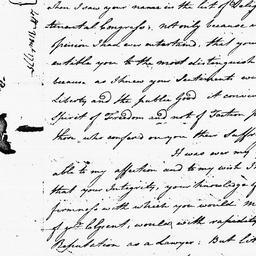 when I saw your names in the list of Delig
tinental Congress, not only because a
opinion I have ever entertaind, that you
entitle you to the most distinguish
because as I knew your Sentiments we
Liberty and the public Good it convin
Spirit of Freedom and not of Faction p
those who confered on you their Suffr
It was ever my
able to my affection and to my wish I
that your Integrity, your knowledge
firmness with which you would m
of yr Client, would with rapidity
Reputation as a Lawyer: But lit